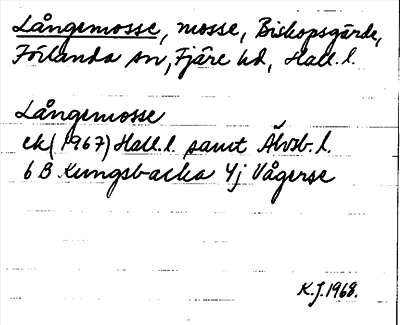 Långemosse, mosse, Biskopsgårde,
Förlanda sn, Fjäre hd, Hall.l.
Långemosse
ek (1967) Hall.l. samt Älvsb.l.
6 B Kungsbacka 4j Vågerse
K.J. 1968.